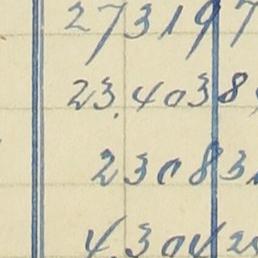 273197
23.4038
230831
4.3042